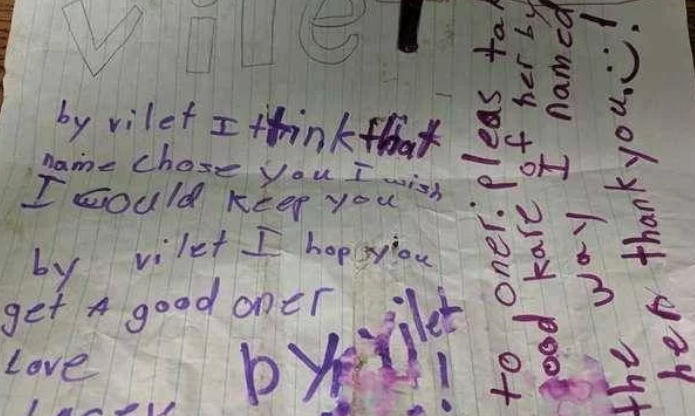 vilet
by vilet I think that
name chose you I wish
I would keep you
by vilet I hop you
get A good oner
Love
by vilet
!
to oner: pleas tak
ood kare of her by
the way I named
her thank you!